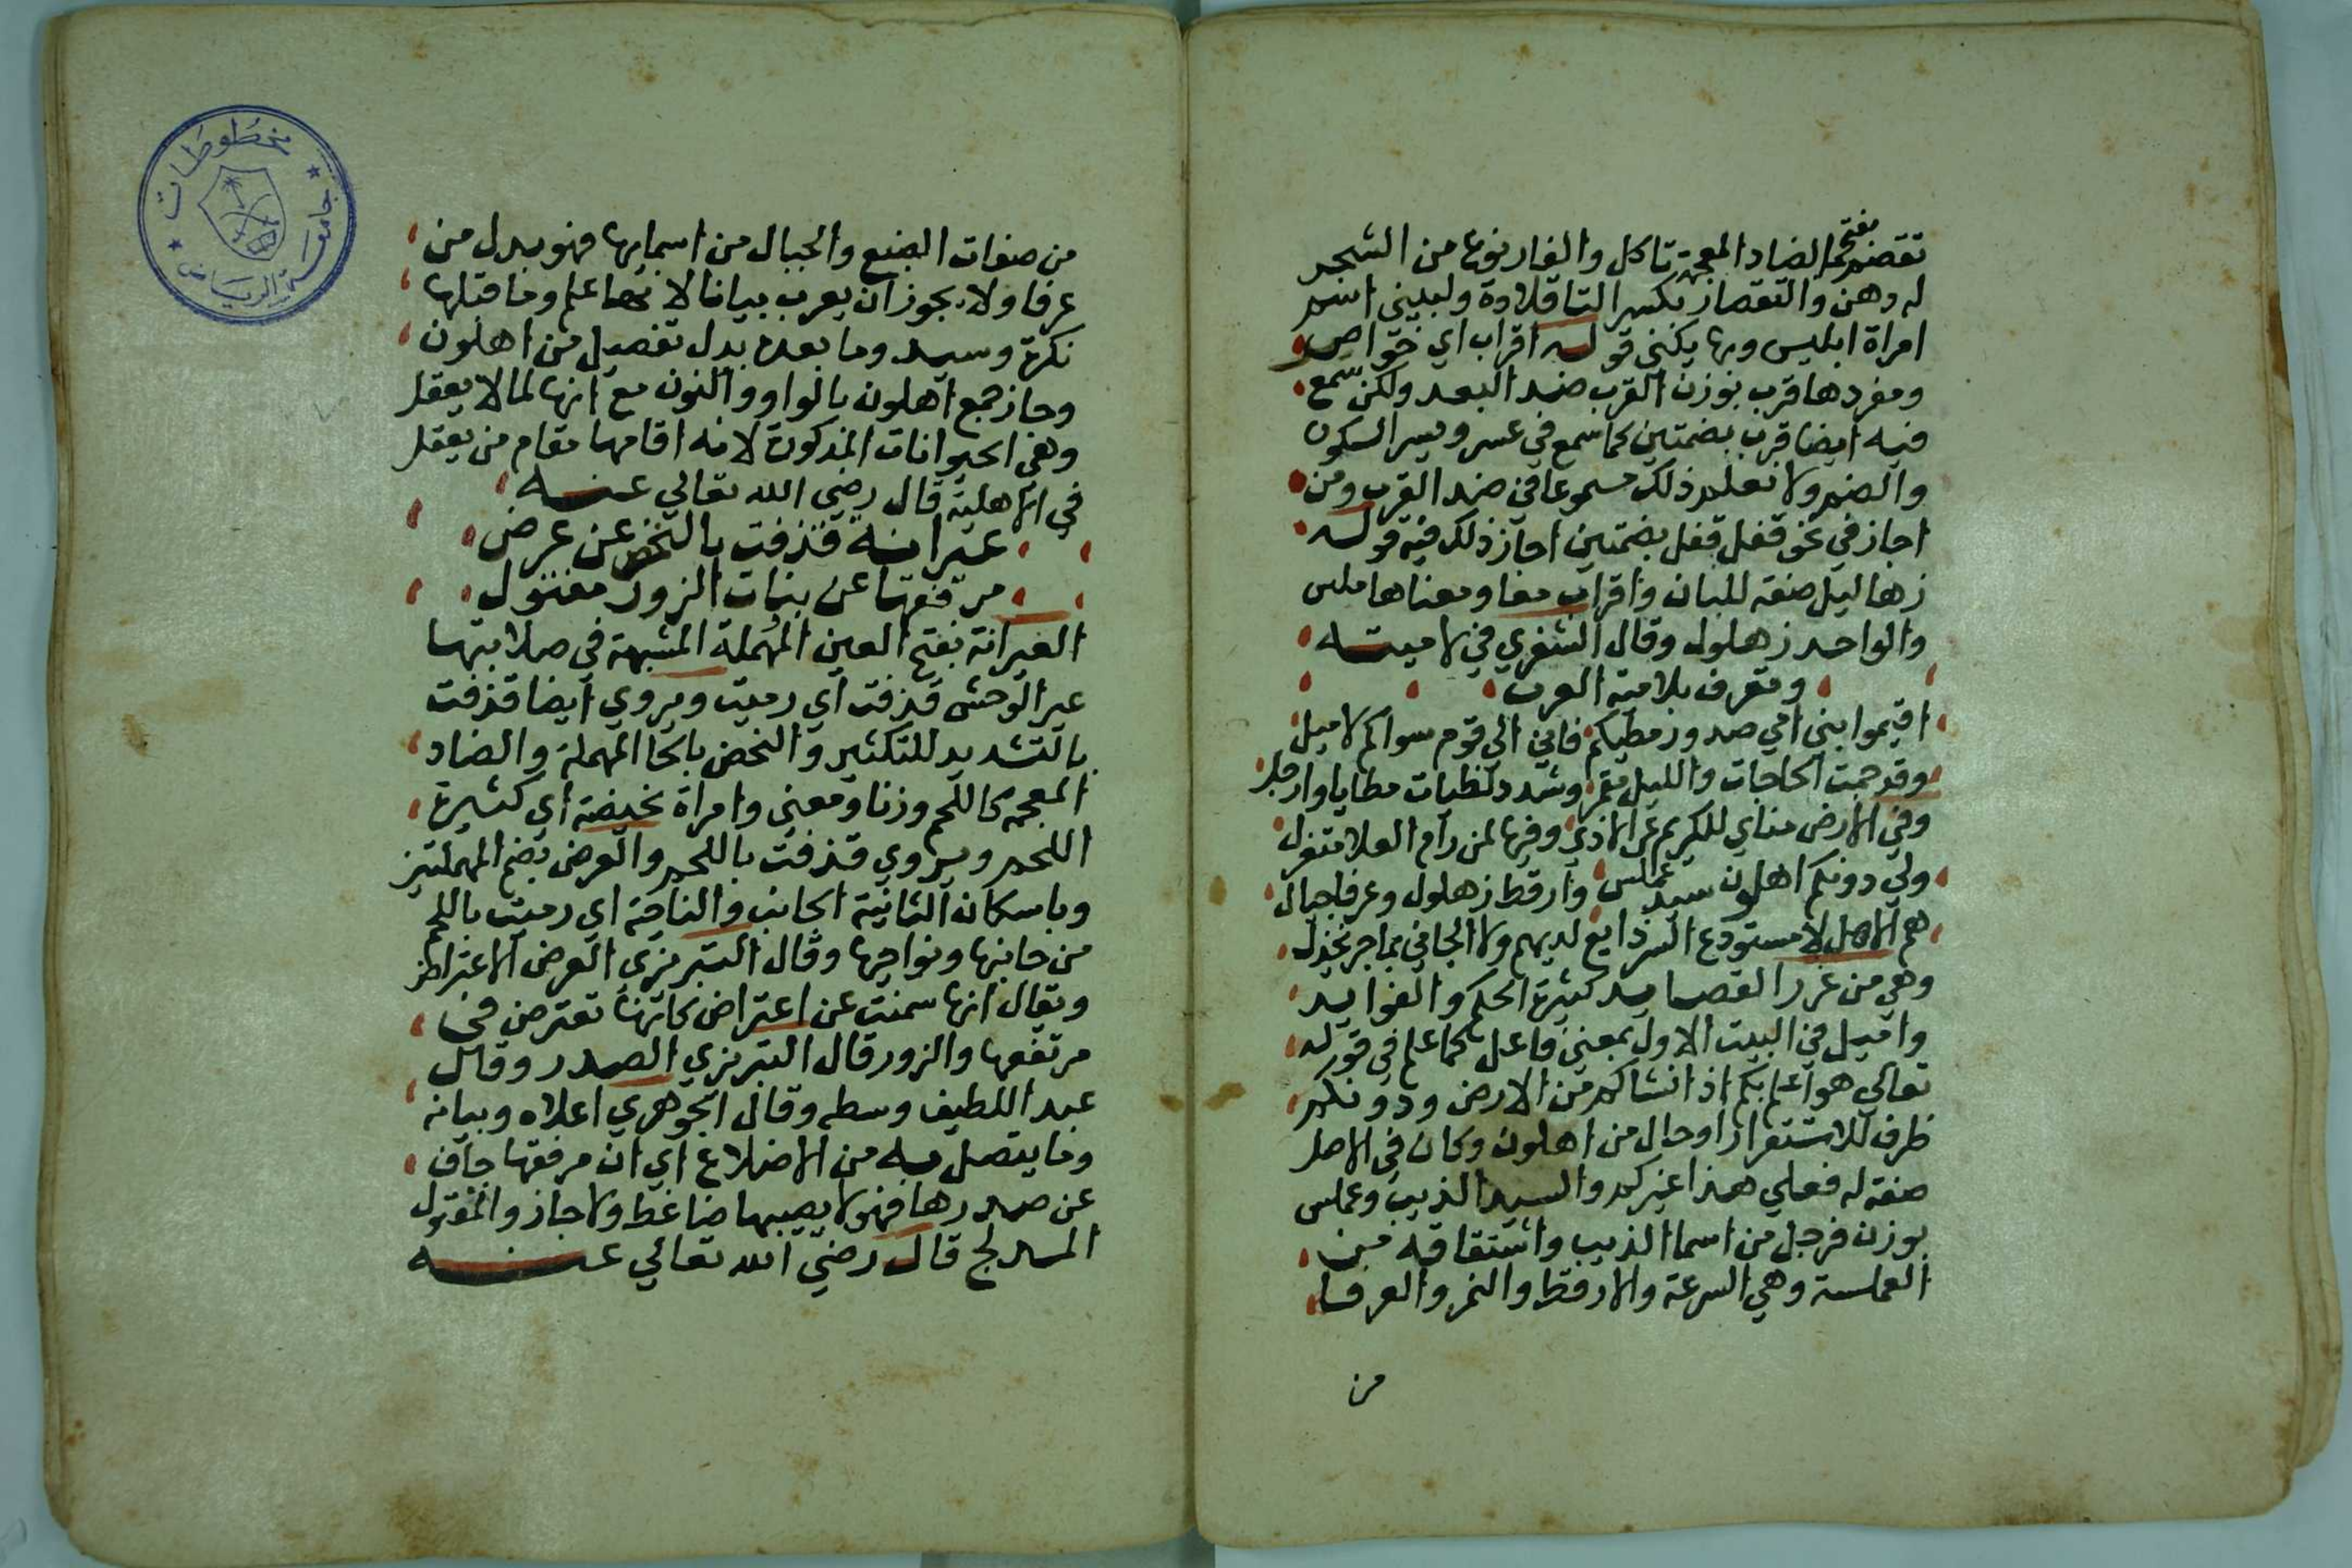 تقضم بفتح الضاد المعجمة تاكل والغار نوعا من الشجر
له دهن والتقصار بكسر التا قلادة ولبيني اسم
امراة ابليس وبها يكنى قوله اقراب اي خواصر
ومفردها قرب بوزن القرب ضد البعد ولكن سمع
فيه ايضا قرب بضمتين كما سمع في عسر ويسر السكون
والضم ولا نعلم ذلك مسموعا في ضد القرب ومن
اجاز في نحو قفل قفل بضمتين اجاز ذلك فيه قوله
زهاليل صفة للبان واقراب معا ومعناها ملس
والواحد زهلول وقال الشنفري في لاميته
وتعرف بلامية العرب
اقيموا بني امي صدور مطيكم فاني الي قوم سواكم لاميل
وقد حمت الحاجات والليل مقمر وشدد لطيات مطايا وارحل
وفي الارض مناي للكريم عن الاذي وفيها لمن رام العلا متعزل
ولي دونكم اهلون سيد عملس وارقط زهلول وعرفا جيال
هم الاهل لا مستودع السر ذايع لديهم ولا الجاني بما جر يخذل
وهي من غرر القصايد كثيرة الحكم والفوايد
واميل في البيت الاول بمعني فاعل كما علم في قوله
تعالي هو اعلم بكم اذ انشاكم من الارض ودونكم
ظرف للاستقرار او حال من اهلون وكان في الاصل
صفة له فعلي هذا غيركم والسيد الذيب وعملس
بوزن فرجل من اسما الذيب واشتقاقه من
العملسة وهي السرعة والارقط والنمر والعرفا
من
مخطوطات
جامعة الرياض
من صفات الضبع والجيال من اسمايها فهو بدل من
عرفا ولا يجوز ان يعرب بيانا لانهما علم وما قبلها
نكرة وسيد وما بعده بدل تفصيل من اهلون
وجاز جمع اهلون بالواو والنون مع انها لما لا يعقل
وهي الحيوانات المذكورة لانه اقامها مقام من يعقل
في الاهلية قال رضي الله تعالي عنه
عيرانة قذفت بالنحض عن عرض
مرفقها عن بنات الزور مفتول
العيرانة بفتح العين المهملة المشبهة في صلابتها
عير الوحش قذفت اي رميت ويروي ايضا قذفت
بالتشديد للتكثير والنحض بالحا المهملة والضاد
المعجمة كاللحم وزنا ومعني وامراة نحيضة اي كثيرة
اللحم ويروي قذفت باللحم والعرض بضم المهملتين
وباسكان الثانية الجانب والناحية اي رميت باللحم
من جانبها ونواحيها وقال التبريزي العرض الاعتراض
ويقال انها سمنت عن اعتراض كانها تعترض في
مرتفعها والزور قال التبريزي الصدر وقال
عبد اللطيف وسطه وقال الجوهري اعلاه وبيانه
وما يتصل به من الاضلاع اي ان مرفقها جاف
عن صدرها فهو لا يصيبها ضاغط ولا حاز والمفتول
المدلج قال رضي الله تعالي عنه